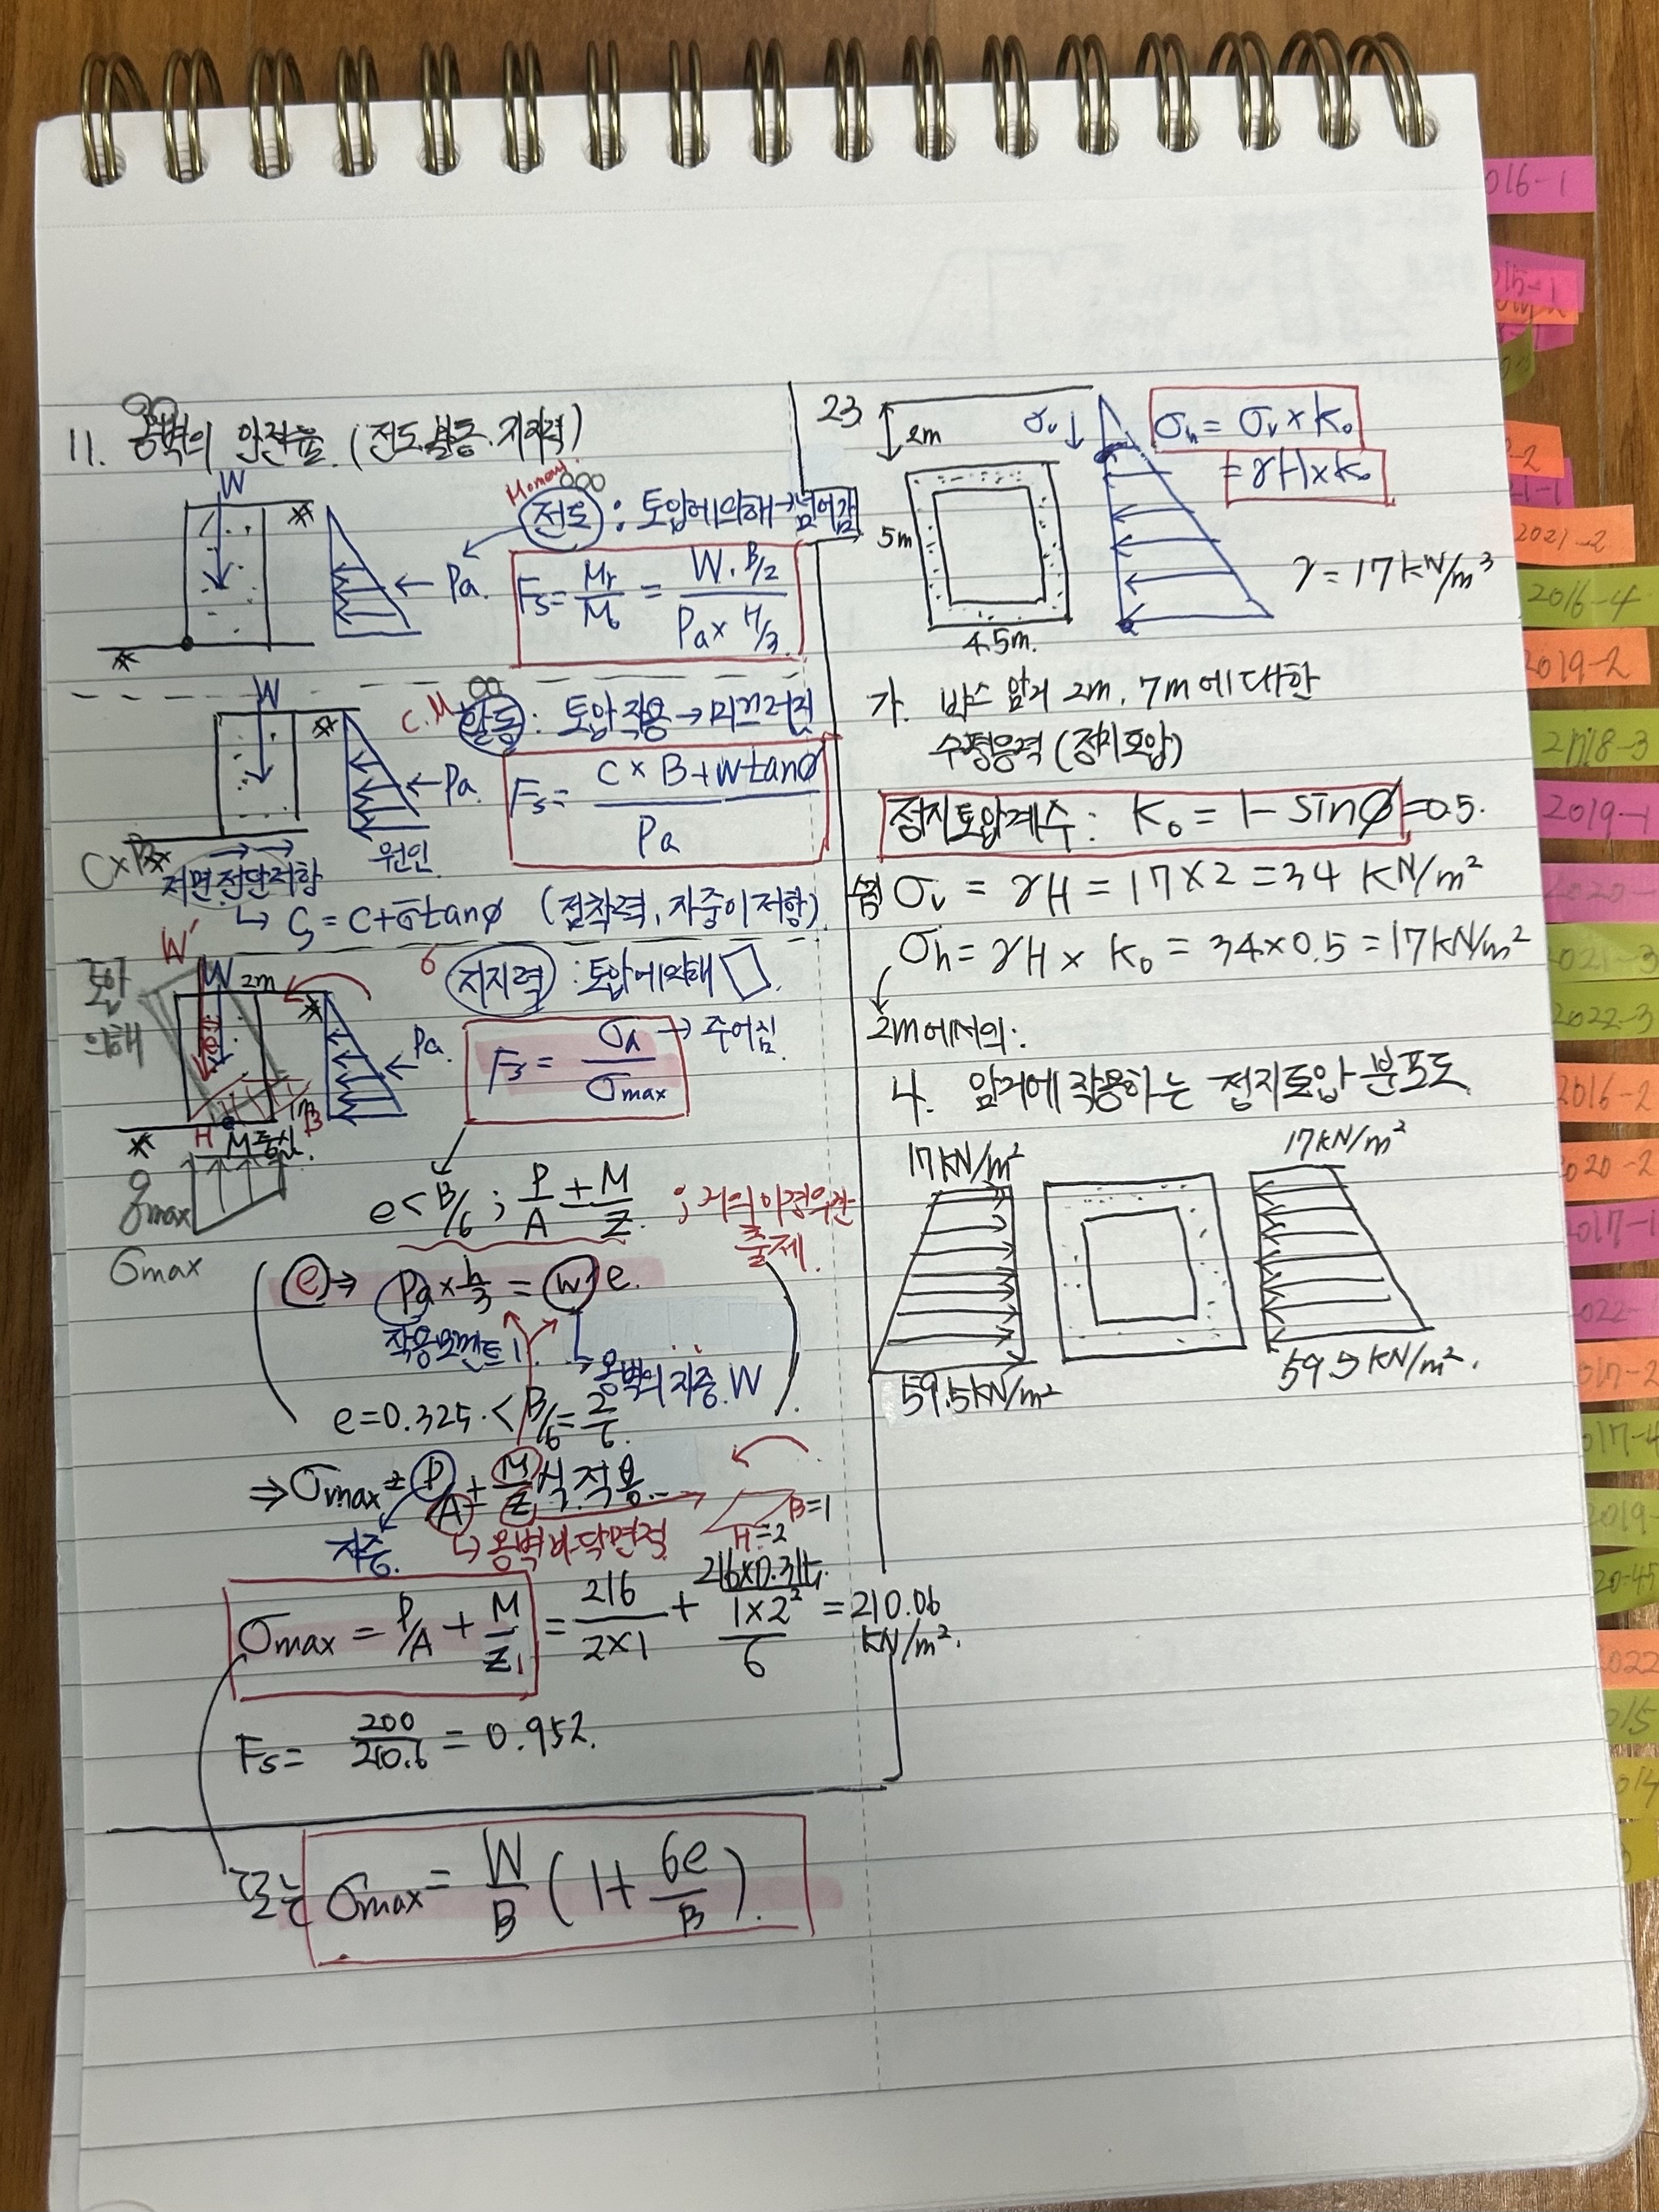 11. 옹벽의 안전율. (전도. 활동. 지지력)
W
Moment
전도 : 토압에 의해 → 넘어감
Pa.
Fs = Mr/Mo = W · B/2 / Pa × H/3
W
C.M 활동 : 토압 작용 → 미끄러짐
Pa
Fs = C × B + W tanø / Pa
C×B
원인
저면 전단저항
↳ ς = c + σ̄ tanø (점착력, 자중이 저항)
W'
토압
의해
W 2m
지지력 : 토압에 의해
Pa.
Fs = σa / σmax → 주어짐
1m B
H M 중심.
qmax
σmax
e < B/6 ; P/A ± M/Z ; 거의 이 경우만
출제.
e ⇒ Pa × h/3 = W' e.
작용모멘트
→ 옹벽의 자중. W
e = 0.325 · < B/6 = 2/6.
⇒ σmax = P/A + M/Z 식 적용.
자중. ↳ 옹벽 바닥면적
B=1
H=2
σmax = P/A + M/Z = 216 / 2×1 + 216×0.315 / 1×2²/6 = 210.06
KN/m².
Fs = 200 / 210.6 = 0.952.
또는 σmax = W/B (1 + 6e/B).
23.
2m
σv ↓
σh = σv × Ko
= γH × Ko
5m
4.5m.
γ = 17 kN/m³
가. 박스 암거 2m, 7m에 대한
수평응력 (정지토압)
정지토압계수 : Ko = 1 − sinø = 0.5.
σv = γH = 17×2 = 34 KN/m²
σh = γH × Ko = 34×0.5 = 17KN/m²
2m에서의.
나. 암거에 작용하는 정지토압 분포도
17KN/m²
17KN/m²
59.5KN/m²
59.5KN/m².
016-1
015-1
-2
21-1
2021-2
2016-4
2019-2
2018-3
2019-1
2020-
021-3
2022-3
2016-2
020-2
2017-1
022-1
017-2
017-4
2019-
022
015
014